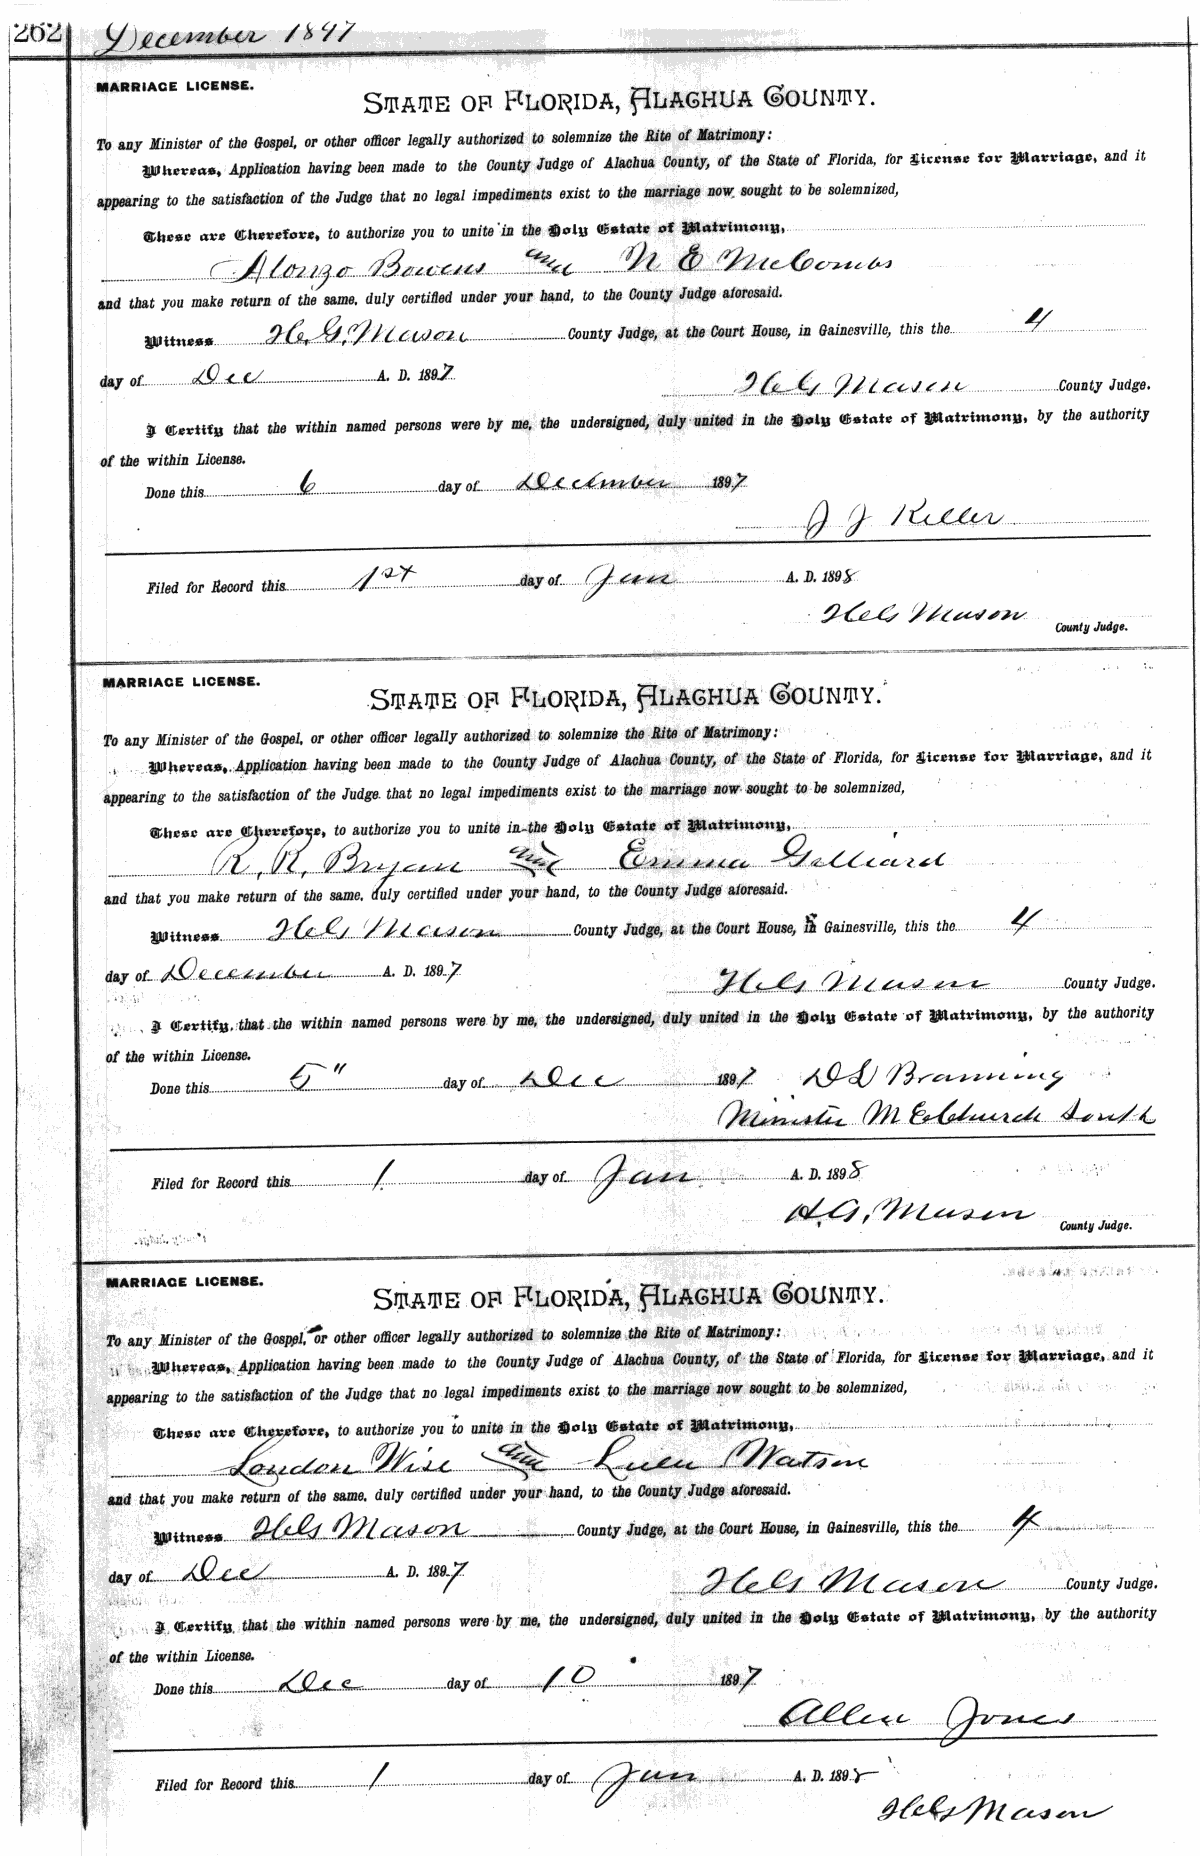 262 December 1897
MARRIAGE LICENSE.
STATE OF FLORIDA, ALACHUA COUNTY.
To any Minister of the Gospel, or other officer legally authorized to solemnize the Rite of Matrimony:
Whereas, Application having been made to the County Judge of Alachua County, of the State of Florida, for License for Marriage, and it
appearing to the satisfaction of the Judge that no legal impediments exist to the marriage now sought to be solemnized,
These are Therefore, to authorize you to unite in the Holy Estate of Matrimony,
Alonzo Bowens and N E McCombs
and that you make return of the same, duly certified under your hand, to the County Judge aforesaid.
Witness H. G. Mason County Judge, at the Court House, in Gainesville, this the 4
day of Dec A. D. 1897
H G Mason County Judge.
I Certify that the within named persons were by me, the undersigned, duly united in the Holy Estate of Matrimony, by the authority
of the within License.
Done this 6 day of December 1897
J J Keller
Filed for Record this 1st day of Jan A. D. 1898
H G Mason
County Judge.
MARRIAGE LICENSE.
STATE OF FLORIDA, ALACHUA COUNTY.
To any Minister of the Gospel, or other officer legally authorized to solemnize the Rite of Matrimony:
Whereas, Application having been made to the County Judge of Alachua County, of the State of Florida, for License for Marriage, and it
appearing to the satisfaction of the Judge that no legal impediments exist to the marriage now sought to be solemnized,
These are Therefore, to authorize you to unite in the Holy Estate of Matrimony,
R. R. Bryan and Emma Galliard
and that you make return of the same, duly certified under your hand, to the County Judge aforesaid.
Witness H G Mason County Judge, at the Court House, in Gainesville, this the 4
day of December A. D. 1897
H G Mason County Judge.
I Certify, that the within named persons were by me, the undersigned, duly united in the Holy Estate of Matrimony, by the authority
of the within License.
Done this 5" day of Dec 1897 D L Branning
Minister M E Church South
Filed for Record this 1 day of Jan A. D. 1898
H. G. Mason
County Judge.
MARRIAGE LICENSE.
STATE OF FLORIDA, ALACHUA COUNTY.
To any Minister of the Gospel, or other officer legally authorized to solemnize the Rite of Matrimony:
Whereas, Application having been made to the County Judge of Alachua County, of the State of Florida, for License for Marriage, and it
appearing to the satisfaction of the Judge that no legal impediments exist to the marriage now sought to be solemnized,
These are Therefore, to authorize you to unite in the Holy Estate of Matrimony,
London Wise and Lulu Watson
and that you make return of the same, duly certified under your hand, to the County Judge aforesaid.
Witness H G Mason County Judge, at the Court House, in Gainesville, this the 4
day of Dec A. D. 1897
H G Mason County Judge.
I Certify, that the within named persons were by me, the undersigned, duly united in the Holy Estate of Matrimony, by the authority
of the within License.
Done this Dec day of 10 1897
Allen Jones
Filed for Record this 1 day of Jan A. D. 1898
H G Mason